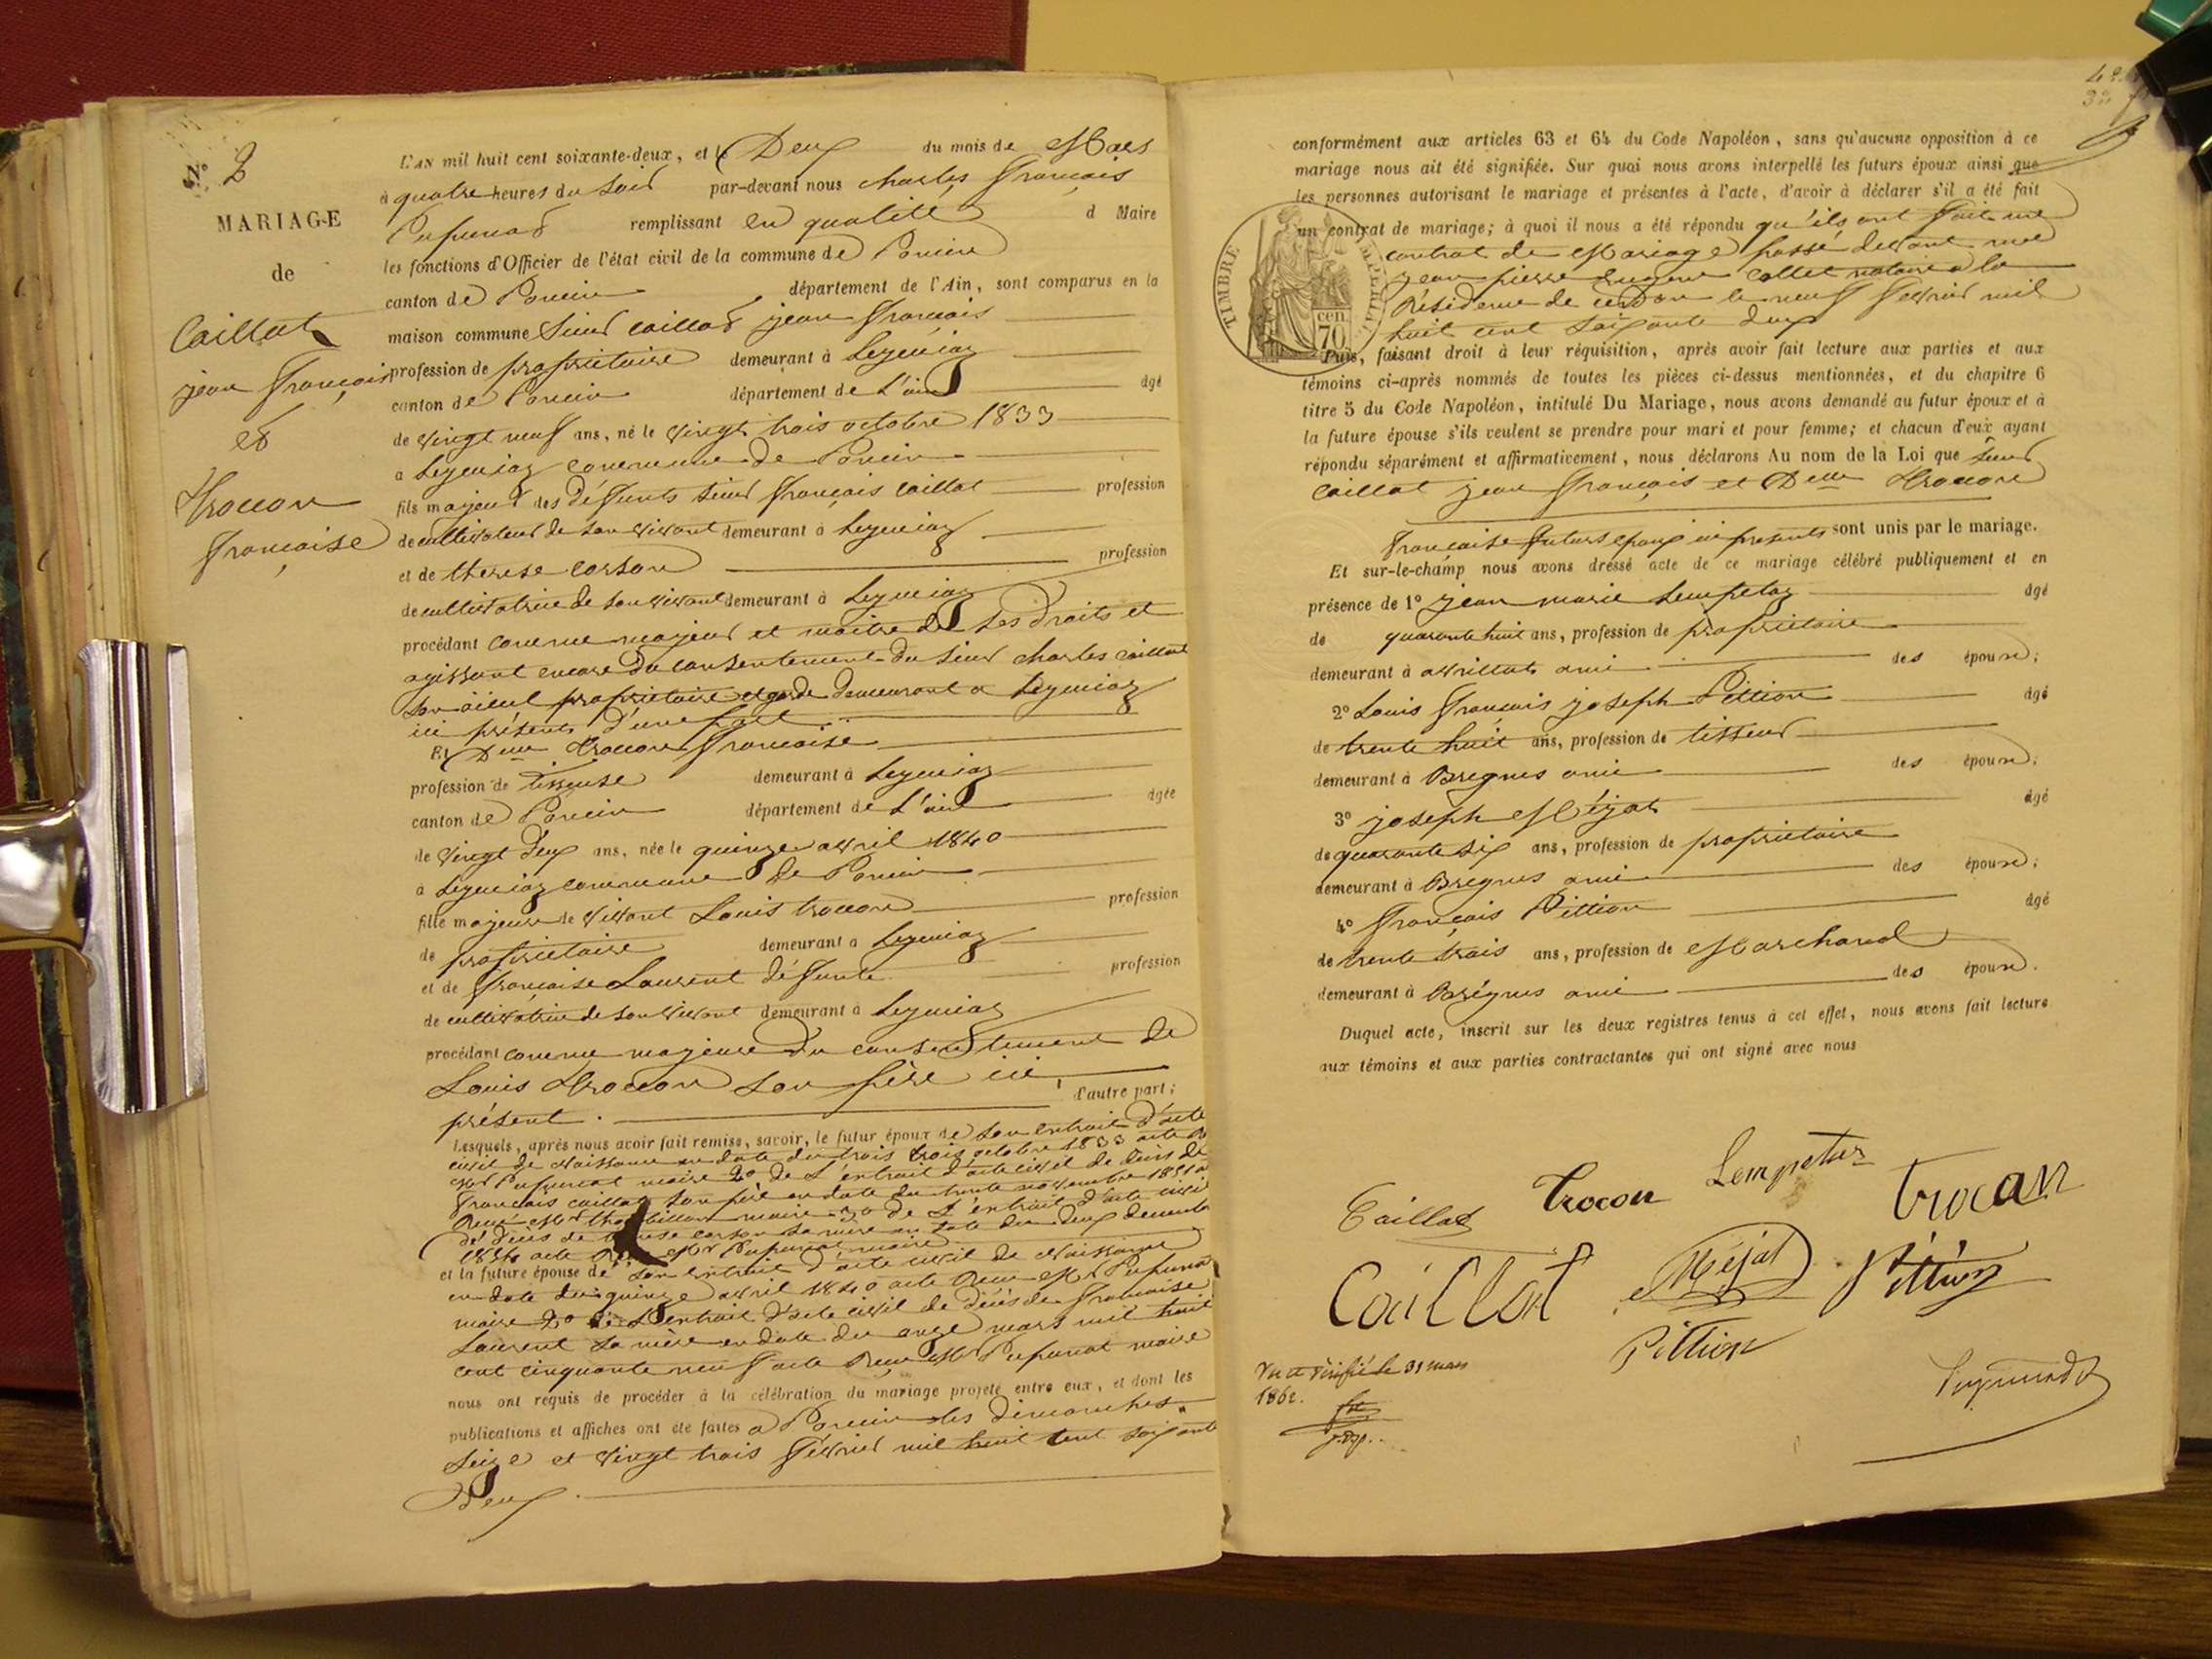 N° 2
MARIAGE
de
Caillat
jean françois
et
Trocon
françoise
L'AN mil huit cent soixante-deux, et le Deux du mois de Mars
à quatre heures du soir par-devant nous charles françois
remplissant en qualité d Maire
les fonctions d'Officier de l'état civil de la commune de Poncin
canton de Poncin département de l'Ain, sont comparus en la
maison commune sieur caillat jean françois
profession de propriétaire demeurant à Leymiaz
canton de Poncin département de L'ain âgé
de vingt neuf ans, né le vingt trois octobre 1833
a Leymiaz commune de Poncin
fils majeur des défunts sieur françois caillat profession
de cultivateur de son vivant demeurant à Leymiaz
et de therese corson profession
de cultivatrice de son vivant demeurant à Leymiaz
procédant comme majeur et maitre de ses droits et
agissant encore du consentement du sieur charles caillat
son aïeul propriétaire et garde demeurant a Leymiaz
ici présents d'une part.
Et Delle trocon françoise
profession de tisseuse demeurant à Leymiaz
canton de Poncin département de L'ain âgée
de vingt deux ans, née le quinze avril 1840
à Leymiaz commune de Poncin
fille majeure de vivant Louis trocon profession
de propriétaire demeurant a Leymiaz
et de françoise Laurent défunte profession
de cultivatrice de son vivant demeurant à Leymiaz
procédant comme majeure du consentement de
Louis trocon son père ici
présent. d'autre part;
Lesquels, après nous avoir fait remise, savoir, le futur époux de son extrait d'acte
civil de Naissance en date du trois octobre 1833 acte
maire 2° de L'extrait d'acte civil de décès de
françois caillat son père en date du trente novembre 1851
maire 3° de L'extrait d'acte civil
de décès de corson sa mère en date du deux
acte maire
et la future épouse de son extrait d'acte civil de Naissance
en date du quinze avril 1840 acte Reçu Mr
maire 2° de L'extrait d'acte civil de décès de françoise
Laurent sa mère en date du onze mars mil huit
cent cinquante neuf acte Reçu Mr maire
nous ont requis de procéder à la célébration du mariage projeté entre eux, et dont les
publications et affiches ont été faites a Poncin les dimanches
seize et vingt trois février mil huit cent soixante
Deux.
conformément aux articles 63 et 64 du Code Napoléon, sans qu'aucune opposition à ce
mariage nous ait été signifiée. Sur quoi nous avons interpellé les futurs époux ainsi que
les personnes autorisant le mariage et présentes à l'acte, d'avoir à déclarer s'il a été fait
un contrat de mariage; à quoi il nous a été répondu qu'ils ont fait un
contrat de Mariage passé devant me
jean pierre eugene collet notaire a la
Résidence de cerdon le neuf février mil
huit cent soixante deux
TIMBRE
IMPÉRIAL
cen
70
Puis, faisant droit à leur réquisition, après avoir fait lecture aux parties et aux
témoins ci-après nommés de toutes les pièces ci-dessus mentionnées, et du chapitre 6
titre 5 du Code Napoléon, intitulé Du Mariage, nous avons demandé au futur époux et à
la future épouse s'ils veulent se prendre pour mari et pour femme; et chacun d'eux ayant
répondu séparément et affirmativement, nous déclarons Au nom de la Loi que sieur
caillat jean françois et Delle trocon
françoise futurs époux ici présents sont unis par le mariage.
Et sur-le-champ nous avons dressé acte de ce mariage célébré publiquement et en
présence de 1° jean marie Lempetaz âgé
de quarante huit ans, profession de propriétaire
demeurant à avrillat ami des époux;
2° Louis françois joseph Pittion âgé
de trente huit ans, profession de tisseur
demeurant à Bregnes ami des époux;
3° joseph Méjat âgé
de quarante six ans, profession de propriétaire
demeurant à Bregnes ami des époux;
4° françois Pittion âgé
de trente trois ans, profession de Marchand
demeurant à Brégnes ami des époux.
Duquel acte, inscrit sur les deux registres tenus à cet effet, nous avons fait lecture
aux témoins et aux parties contractantes qui ont signé avec nous
Caillat Trocon Lempetaz trocon
Caillat Méjat Pittion
Pittion
Vu et vérifié le 31 mars
1862.